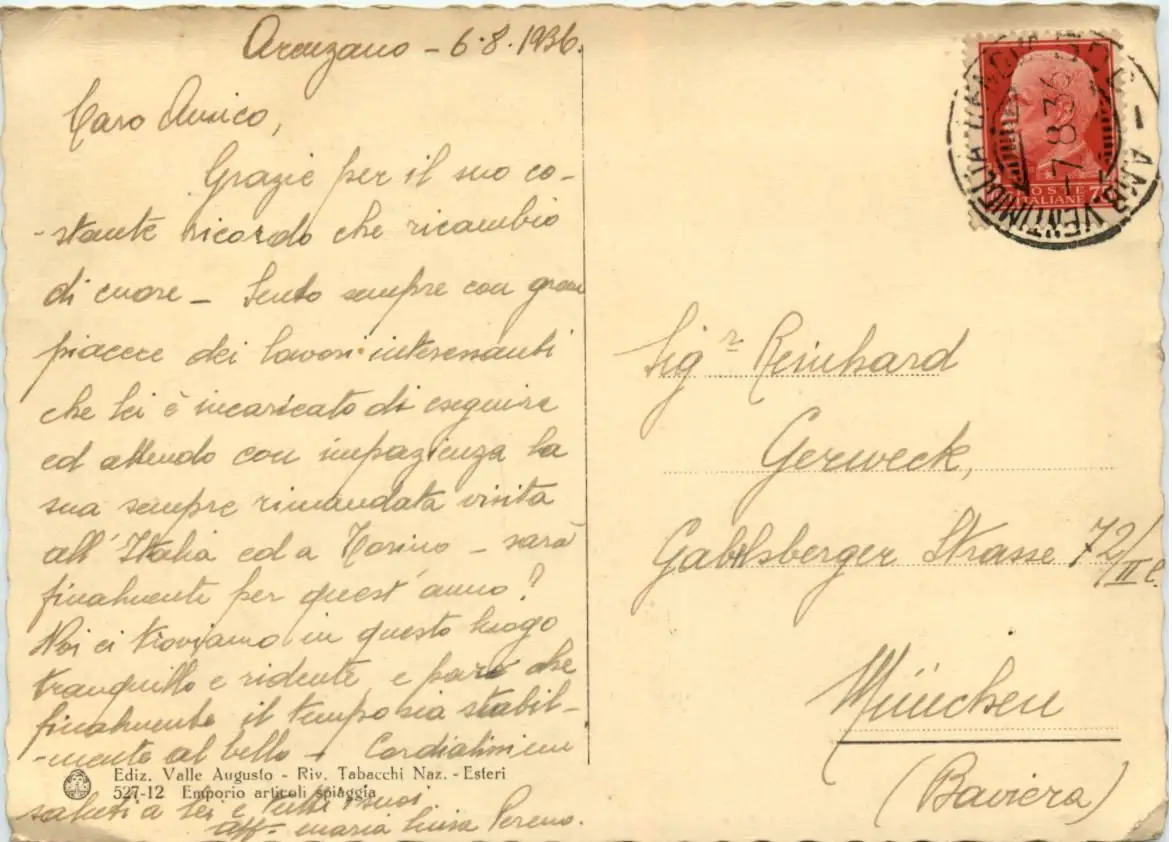 Arenzano - 6.8.1936.
Caro Amico,
Grazie per il suo co-
-stante ricordo che ricambio
di cuore - Sento sempre con gran
piacere dei lavori interessanti
che Lei è incaricato di eseguire
ed attendo con impazienza la
sua sempre rimandata visita
all'Italia ed a Torino - sarà
finalmente per quest'anno?
Noi ci troviamo in questo luogo
tranquillo e ridente e pare che
finalmente il tempo sia stabil-
-mente al bello - Cordialissimi
saluti a Lei e tutti i suoi
aff- Maria Luisa Pereno.
Ediz. Valle Augusto - Riv. Tabacchi Naz. - Esteri
527-12 Emporio articoli spiaggia
POSTE 75
ITALIANE
-7.8.36
AMB. VENTIMIGLIA
Sigr Reinhard
Gerweck,
Gabelsberger Strasse 72/II l.
München
(Baviera)